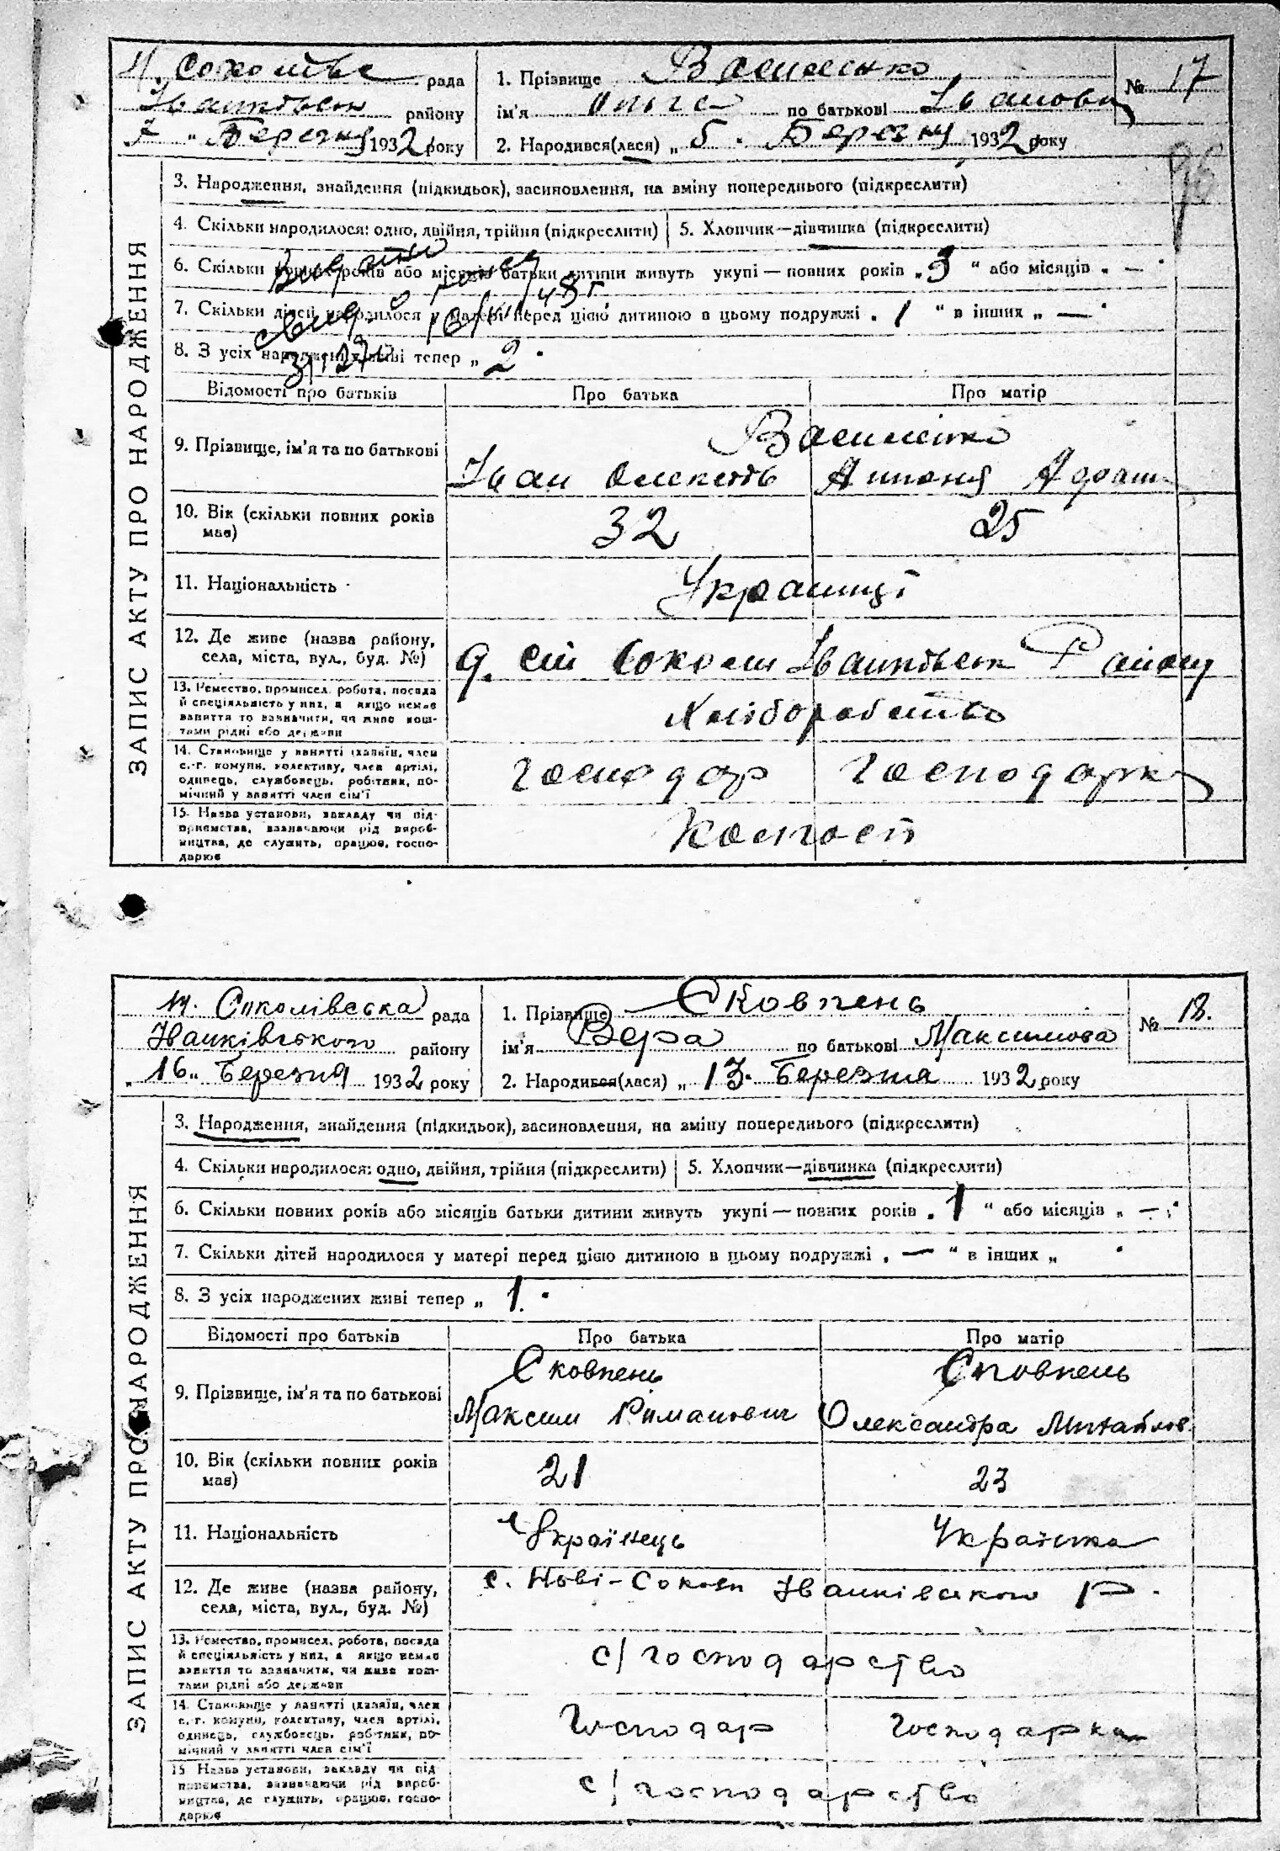 Н. Соколівс рада
Іванківськ району
7 " Березня 1932 року
1. Прізвище Василенко
ім'я Ольга по батькові Іванови
2. Народився(лася) „ 5 . Березня 1932 року
№ 17
96
ЗАПИС АКТУ ПРО НАРОДЖЕННЯ
3. Народження, знайдення (підкидьок), засиновлення, на зміну попереднього (підкреслити)
4. Скільки народилося: одно, двійня, трійня (підкреслити)
5. Хлопчик—дівчинка (підкреслити)
6. Скільки повних років або місяців батьки дитини живуть укупі — повних років „ 3 " або місяців „ — "
7. Скільки дітей народилося у матері перед цією дитиною в цьому подружжі „ 1 " в інших „ — "
8. З усіх народжених живі тепер „ 2 "
Відомості про батьків
Про батька
Про матір
9. Прізвище, ім'я та по батькові
Василенко
Іван Олексов
Антоня Адам
10. Вік (скільки повних років має)
32
25
11. Національність
Українці
12. Де живе (назва району, села, міста, вул., буд. №)
Сокол Іванківськ Району
13. Ремество, промисел, робота, посада й спеціяльність у них, а якщо немає заняття то зазначити, чи живе коштами рідні або держави
Хліборобство
14. Становище у занятті (хазяїн, член с.-г. комуни, колективу, член артілі, одинець, службовець, робітник, помічний у занятті член сім'ї
Господар
Господарка
15. Назва установи, закладу чи підприємства, зазначаючи рід виробництва, де служить, працює, господарює
Колгосп
Н. Соколівська рада
Іванківського району
„ 16 „ Березня 1932 року
1. Прізвище Сковпень
ім'я Вера по батькові Максимова
2. Народився(лася) „ 13. Березня 1932 року
№ 18.
ЗАПИС АКТУ ПРО НАРОДЖЕННЯ
3. Народження, знайдення (підкидьок), засиновлення, на зміну попереднього (підкреслити)
4. Скільки народилося: одно, двійня, трійня (підкреслити)
5. Хлопчик—дівчинка (підкреслити)
6. Скільки повних років або місяців батьки дитини живуть укупі — повних років „ 1 " або місяців „ — "
7. Скільки дітей народилося у матері перед цією дитиною в цьому подружжі „ — " в інших „ "
8. З усіх народжених живі тепер „ 1 "
Відомості про батьків
Про батька
Про матір
9. Прізвище, ім'я та по батькові
Сковпень
Сковпень
Максим Риманович
Олександра Михайлов.
10. Вік (скільки повних років має)
21
23
11. Національність
Українець
Українка
12. Де живе (назва району, села, міста, вул., буд. №)
с. Нові-Сокол Іванківського Р.
13. Ремество, промисел, робота, посада й спеціяльність у них, а якщо немає заняття то зазначити, чи живе коштами рідні або держави
с/господарство
14. Становище у занятті (хазяїн, член с.-г. комуни, колективу, член артілі, одинець, службовець, робітник, помічний у занятті член сім'ї
Господар
Господарка
15 Назва установи, закладу чи підприємства, зазначаючи рід виробництва, де служить, працює, господарює
с/господарство